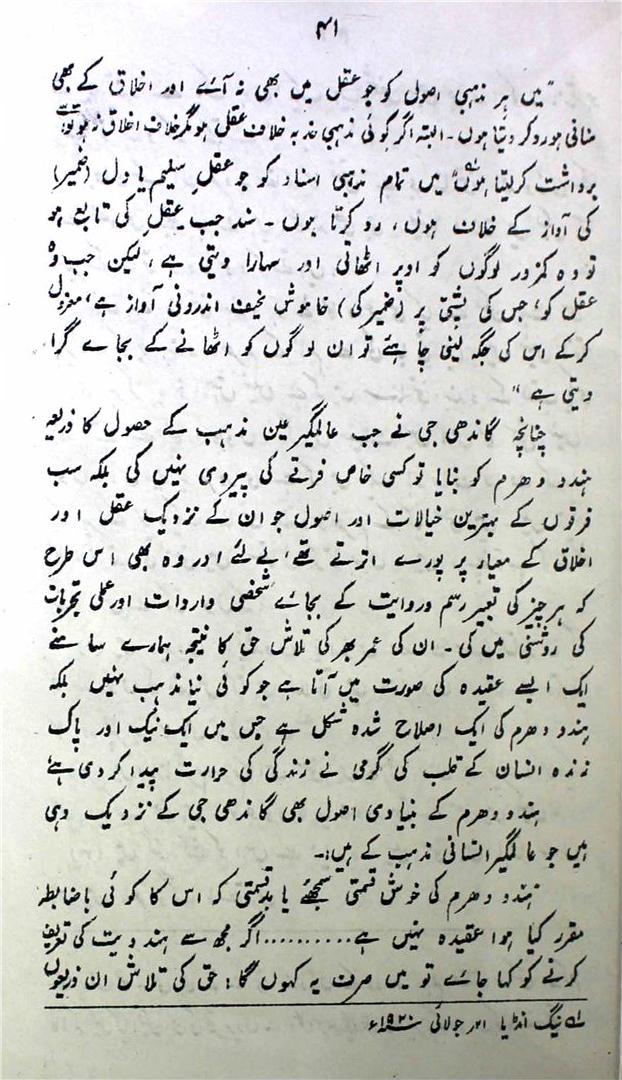 ۴۱
"میں ہر مذہبی اصول کو جو عقل میں بھی نہ آئے اور اخلاق کے بھی
منافی ہو رد کر دیتا ہوں۔ البتہ اگر کوئی مذہبی جذبہ خلاف عقلی ہو مگر خلاف اخلاق نہ ہو تو اسے
برداشت کر لیتا ہوں" میں تمام مذہبی اسناد کو جو عقلِ سلیم یا دل (ضمیر)
کی آواز کے خلاف ہوں، رد کرتا ہوں۔ سند جب عقل کی تابع ہو
تو وہ کمزور لوگوں کو اوپر اٹھاتی اور سہارا دیتی ہے، لیکن جب وہ
عقل کو، جس کی پشتی پر (ضمیر کی) خاموش نحیف اندرونی آواز ہے، معزول
کرکے اس کی جگہ لینی چاہئے تو ان لوگوں کو اٹھانے کے بجائے گرا
دیتی ہے"
چنانچہ گاندھی جی نے جب عالمگیر عین مذہب کے حصول کا ذریعہ
ہندو دھرم کو بنایا تو کسی خاص فرقے کی پیروی نہیں کی بلکہ سب
فرقوں کے بہترین خیالات اور اصول جو ان کے نزدیک عقل اور
اخلاق کے معیار پر پورے اترتے تھے، لے لئے اور وہ بھی اس طرح
کہ ہر چیز کی تعبیر رسم و روایت کے بجائے شخصی واردات اور عملی تجربات
کی روشنی میں کی۔ ان کی عمر بھر کی تلاش حق کا نتیجہ ہمارے سامنے
ایک ایسے عقیدہ کی صورت میں آتا ہے جو کوئی نیا مذہب نہیں بلکہ
ہندو دھرم کی ایک اصلاح شدہ شکل ہے جس میں ایک نیک اور پاک
زندہ انسان کے قلب کی گرمی نے زندگی کی حرارت پیدا کر دی ہے
ہندو دھرم کے بنیادی اصول بھی گاندھی جی کے نزدیک وہی
ہیں جو عالمگیر انسانی مذہب کے ہیں:۔
"ہندو دھرم کی خوش قسمتی سمجھئے یا بدقسمتی کہ اس کا کوئی باضابطہ
مقرر کیا ہوا عقیدہ نہیں ہے.......... اگر مجھ سے ہندویت کی تعریف
کرنے کو کہا جائے تو میں صرف یہ کہوں گا: حق کی تلاش ان ذریعوں
۱؎ ینگ انڈیا جولائی ۱۹۲۰ء